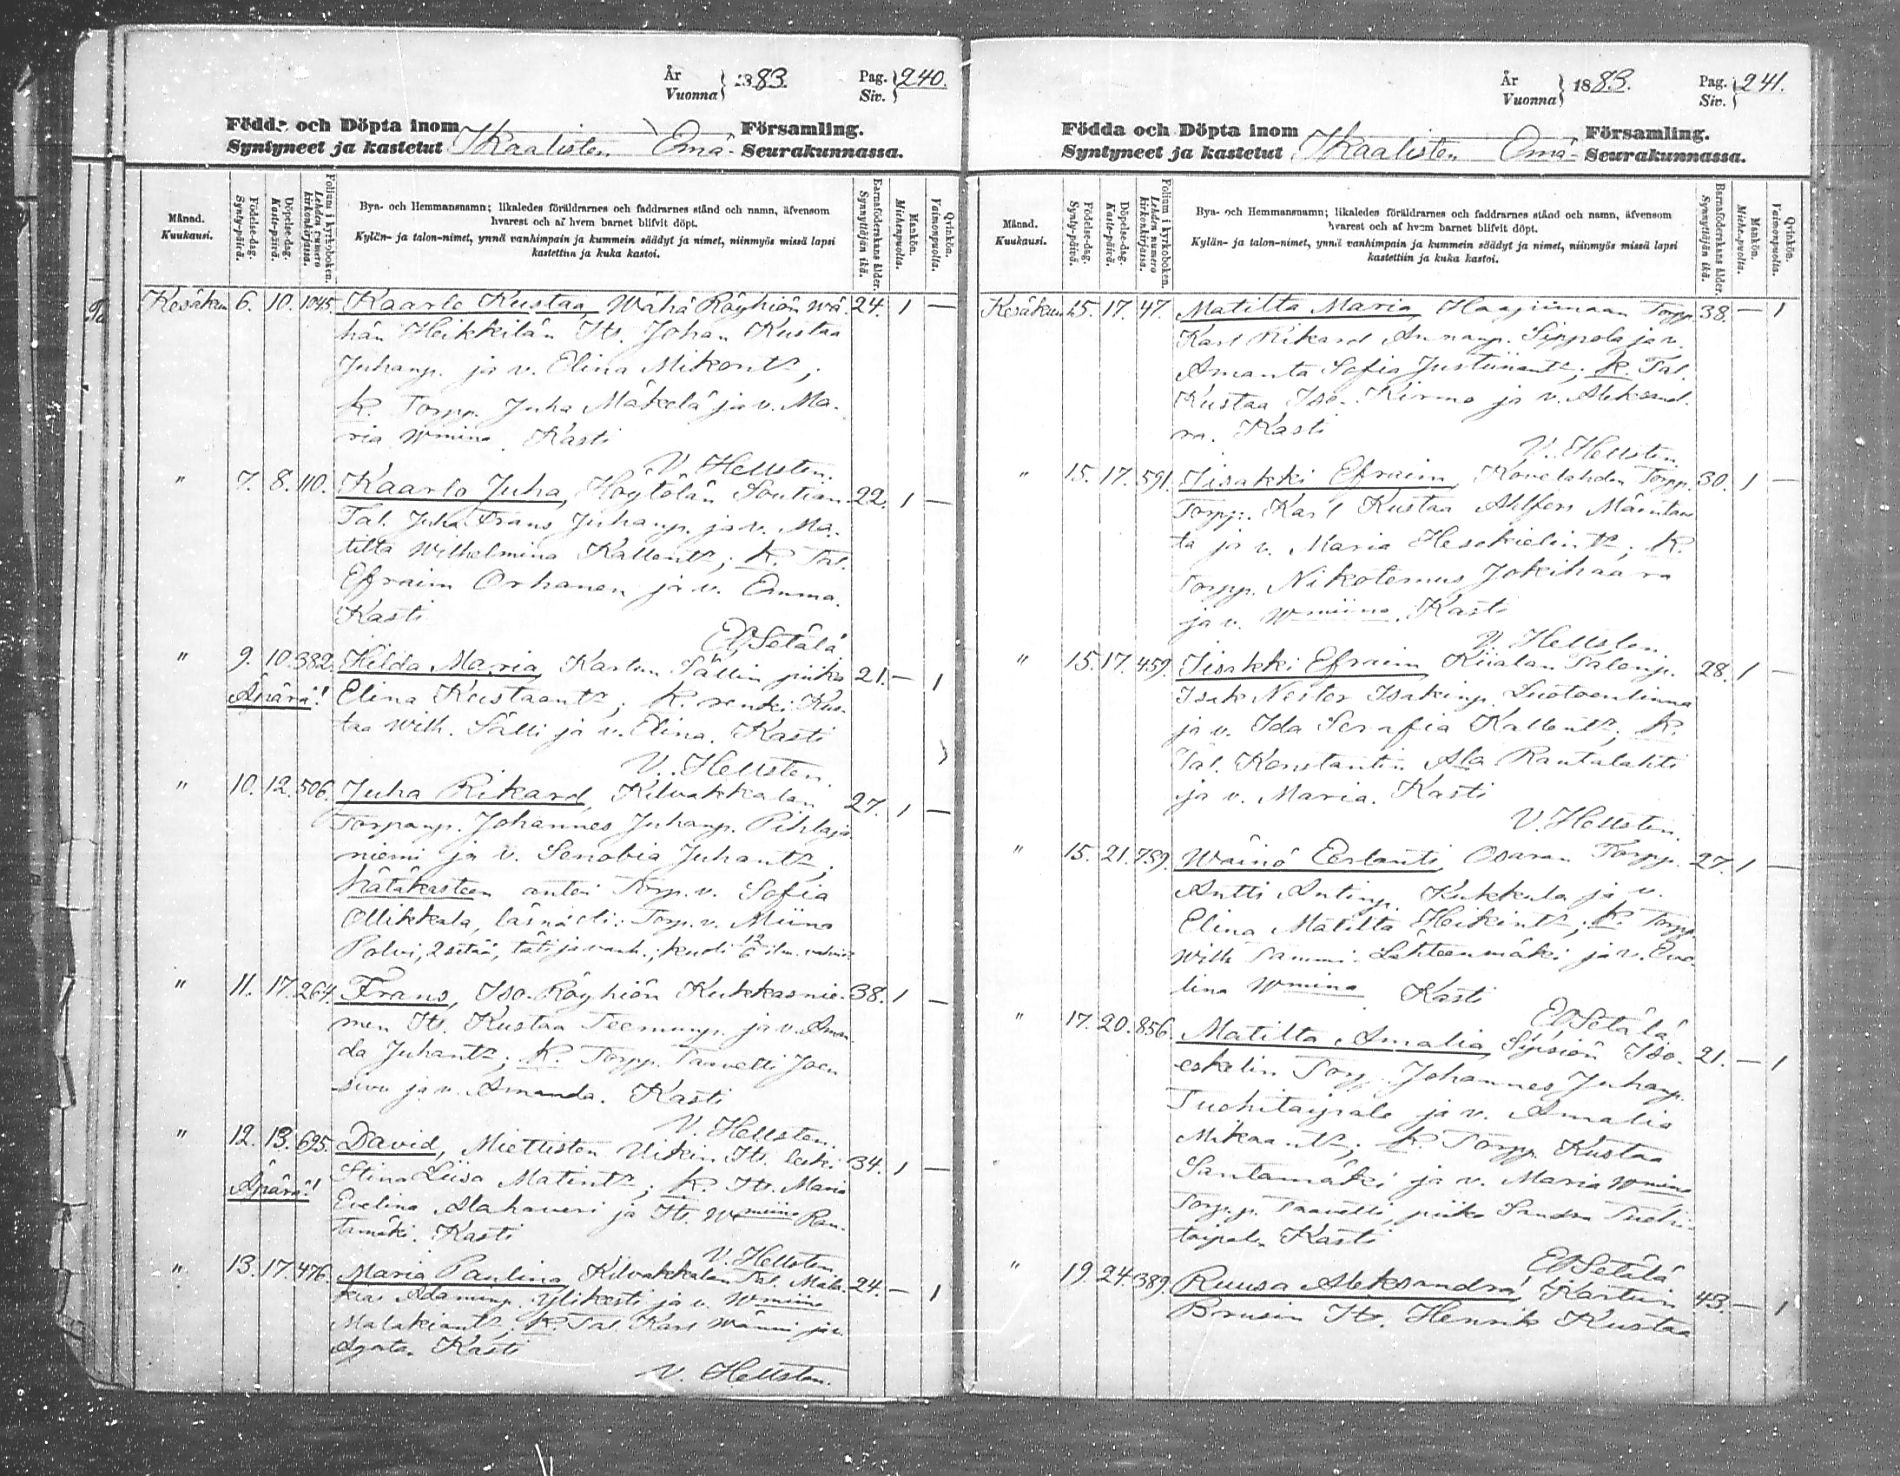 År
Vuonna } 1883. Pag. Siv. } 240.
Födda och Döpta inom
Syntyneet ja kastetut Ikaalisten Emä- Församling.
Seurakunnassa.
Månad.
Kuukausi.
Födelse-dag.
Synty-päivä.
Döpelse-dag.
Kaste-päivä.
Folium i kyrkoboken.
Lehden numero kirkonkirjassa.
Bya- och Hemmansnamn; likaledes föräldrarnes och faddrarnes stånd och namn, äfvensom
hvarest och af hvem barnet blifvit döpt.
Kylän- ja talon-nimet, ynnä vanhimpain ja kummein säädyt ja nimet, niinmyös missä lapsi
kastettiin ja kuka kastoi.
Barnaföderskans ålder.
Synnyttäjän ikä.
Mankön.
Miehenpuolta.
Qvinkön.
Vaimonpuolta.
Kesäkuu 6. 10. 1045. Kaarlo Kustaa, Wähä Röyhiön Wä- 24. 1 —
hän Heikkilän Its. Johan Kustaa
Juhanp. ja v. Elina Mikont?;
K. Torpp. Juha Mäkelä ja v. Ma-
ria Wmina. Kasti
V. Hellsten.
" 7. 8. 110. Kaarlo Juha, Höytölän Soutian 22. 1 —
Tal. Juha Frans Juhanp. ja v. Ma-
tilta Wilhelmina Kallent?; K. Tal.
Efraim Orhanen ja v. Emma.
Kasti
EO Setälä
" 9. 10. 382. Hilda Maria, Kartun Sällin piika 21. — 1
Äpärä! Elina Kustaant?; K. renki Kus-
taa Wilh. Sälli ja v. Elina. Kasti
V. Hellsten.
" 10. 12. 506. Juha Rikard, Kilvakkalan 27. 1 —
Torpanp. Johannes Juhanp. Pihlaja
niemi ja v. Senobia Juhant?;
hätäkasteen antoi Torp. v. Sofia
Ollikkala, läsnä oli: Torp. v. Miina
Polvi, 2 setää, täti ja vanh.; kuoli 12/6 ilm.
" 11. 17. 264. Frans, Iso-Röyhiön Kukkasnie- 38. 1 —
men Its. Kustaa Teemunp. ja v. Aman-
da Juhant?; K. Torpp. Taavetti Joen
sivu ja v. Amanda. Kasti
V. Hellsten.
" 12. 13. 695. David, Miettisten Uiken Its. leski 34. 1 —
Äpärä! Stina Liisa Matint?; K. Its. Maria
Evelina Alahaveri ja Its. Wmina Ran-
tamäki. Kasti
V. Hellsten.
" 13. 17. 476. Maria Paulina, Kilvakkalan Tal. Mala- 24. — 1
kias Adaminp. Ylikesti ja v. Wmiina
Malakiant?; K. Tal. Karl Wänni ja v.
Agata. Kasti
V. Hellsten.
År
Vuonna } 1883. Pag. Siv. } 241.
Födda och Döpta inom
Syntyneet ja kastetut Ikaalisten Emä- Församling.
Seurakunnassa.
Månad.
Kuukausi.
Födelse-dag.
Synty-päivä.
Döpelse-dag.
Kaste-päivä.
Folium i kyrkoboken.
Lehden numero kirkonkirjassa.
Bya- och Hemmansnamn; likaledes föräldrarnes och faddrarnes stånd och namn, äfvensom
hvarest och af hvem barnet blifvit döpt.
Kylän- ja talon-nimet, ynnä vanhimpain ja kummein säädyt ja nimet, niinmyös missä lapsi
kastettiin ja kuka kastoi.
Barnaföderskans ålder.
Synnyttäjän ikä.
Mankön.
Miehenpuolta.
Qvinkön.
Vaimonpuolta.
Kesäkuu 15. 17. 47. Matilta Maria, Haapimaan Torpp. 38. — 1
Karl Rikard Annanp. Sippola ja v.
Amanta Sofia Justiinant?; K. Tal.
Kustaa Iso-Kirmo ja v. Aleksand-
ra. Kasti
V. Hellsten.
" 15. 17. 591. Iisakki Efraim, Kovelahden Torpp. 30. 1 —
Torpp. Karl Kustaa Ahlfors Mäentaus
ta ja v. Maria Hesekielint?; K.
Torpp. Nikotemus Jokihaara
ja v. Wmiina. Kasti
V. Hellsten.
" 15. 17. 459. Iisakki Efraim, Kiialan Talonp. 28. 1 —
Isak Nestor Isakinp. Luotoenlinna
ja v. Ida Serafia Kallent?; K.
Tal. Konstantin Ala Rantalahti
ja v. Maria. Kasti
V. Hellsten.
" 15. 21. 759. Wäinö Eerlanti, Osaran Torpp. 27. 1 —
Antti Antinp. Kukkula ja v.
Elina Matilta Heikint?; K. Torpp.
Wilh. Sammi-Lähteenmäki ja v. Eve-
lina Wmina Kasti
EO Setälä
" 17. 20. 856. Matilta Amalia, Sipsiön Iso- 21. — 1
eskelin Torp. Johannes Juhanp.
Tuohitaipale ja v. Amalia
Mikaant?; K. Torpp. Kustaa
Santamäki ja v. Maria Wmina
Torp.p. Taavetti, piika Sandra Tuohi-
taipale. Kasti
EO Setälä
" 19. 24. 389. Ruusa Aleksandra, Kartun 43. — 1
Brusin Its. Henrik Kustaa